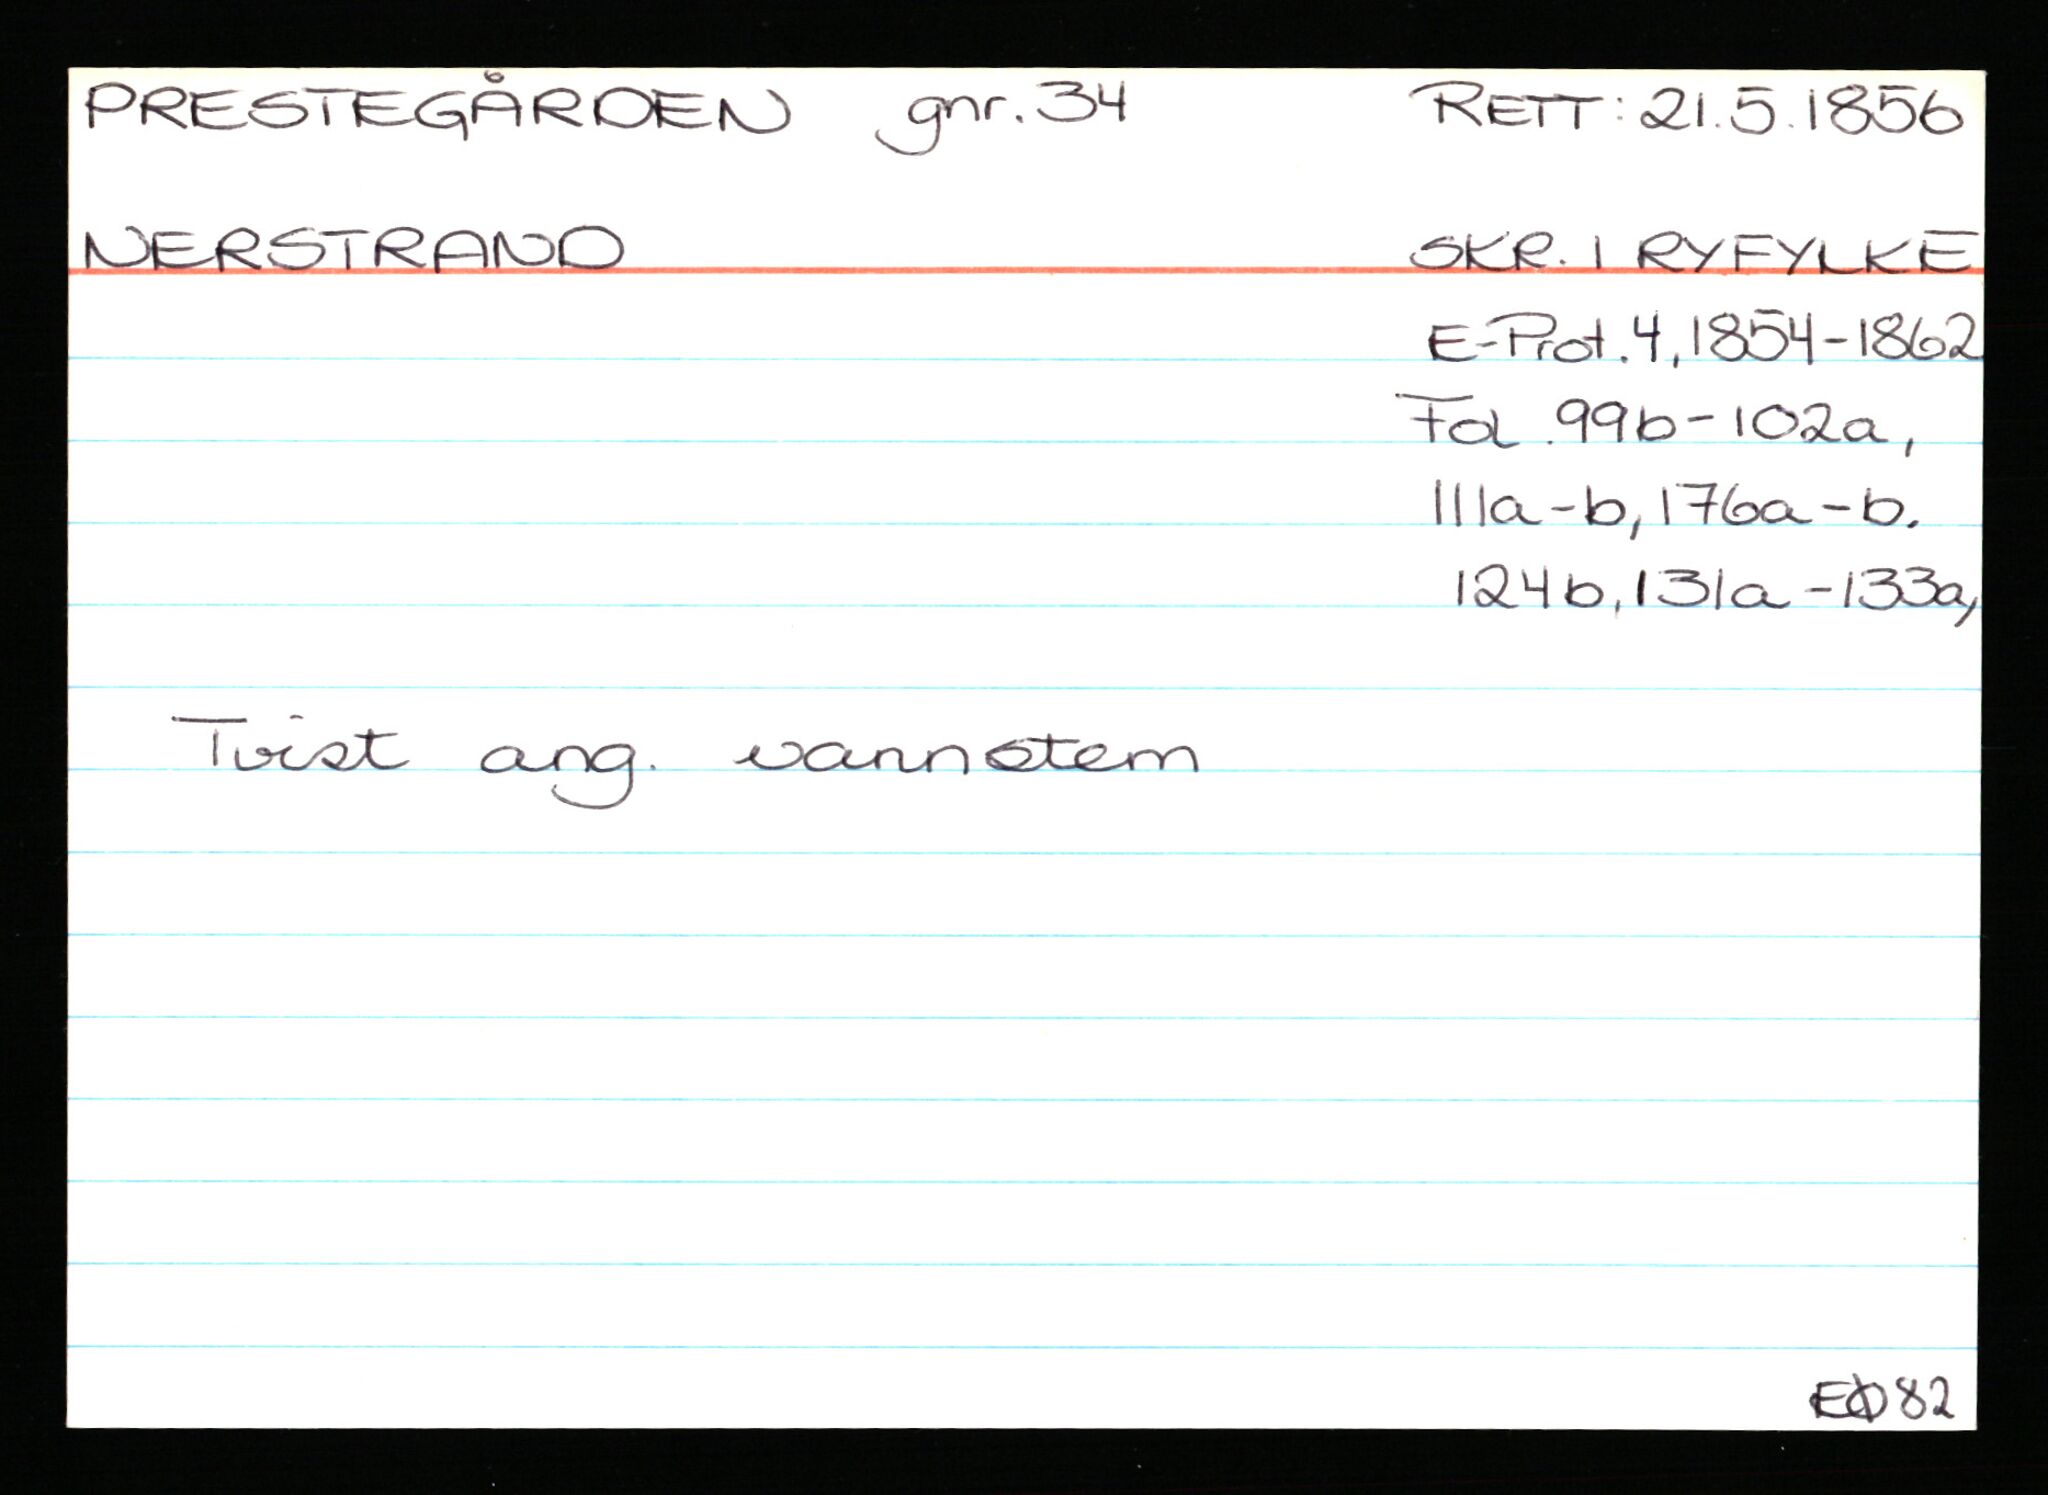 PRESTEGÅRDEN gnr. 34 RETT: 21.5.1856
NERSTRAND SKR. I RYFYLKE
E-Prot. 4, 1854-1862
Fol. 99b-102a,
111a-b, 176a-b.
124b, 131a-133a,
Tvist ang. vannstem
EØ 82